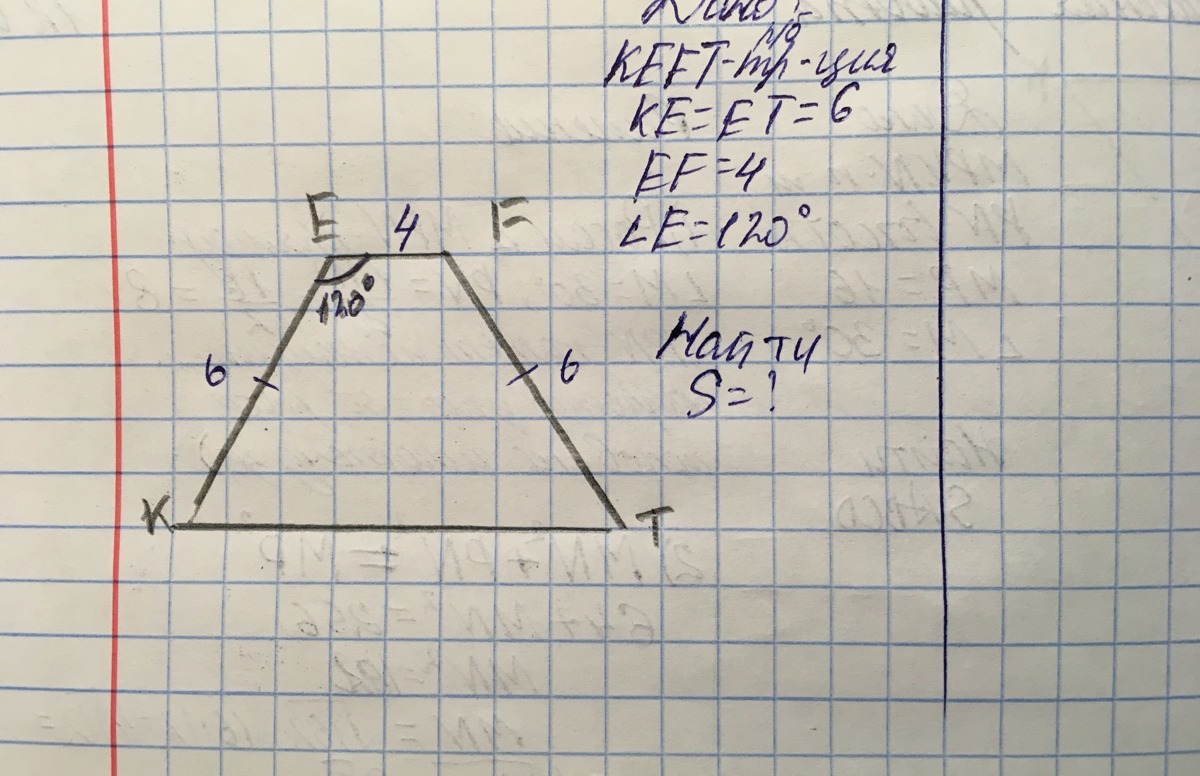 Дано:
KEFT-тр-ция
KE=ET=6
EF=4
∠E=120°
E 4 F
120°
6 6
Найти
S=?
K T